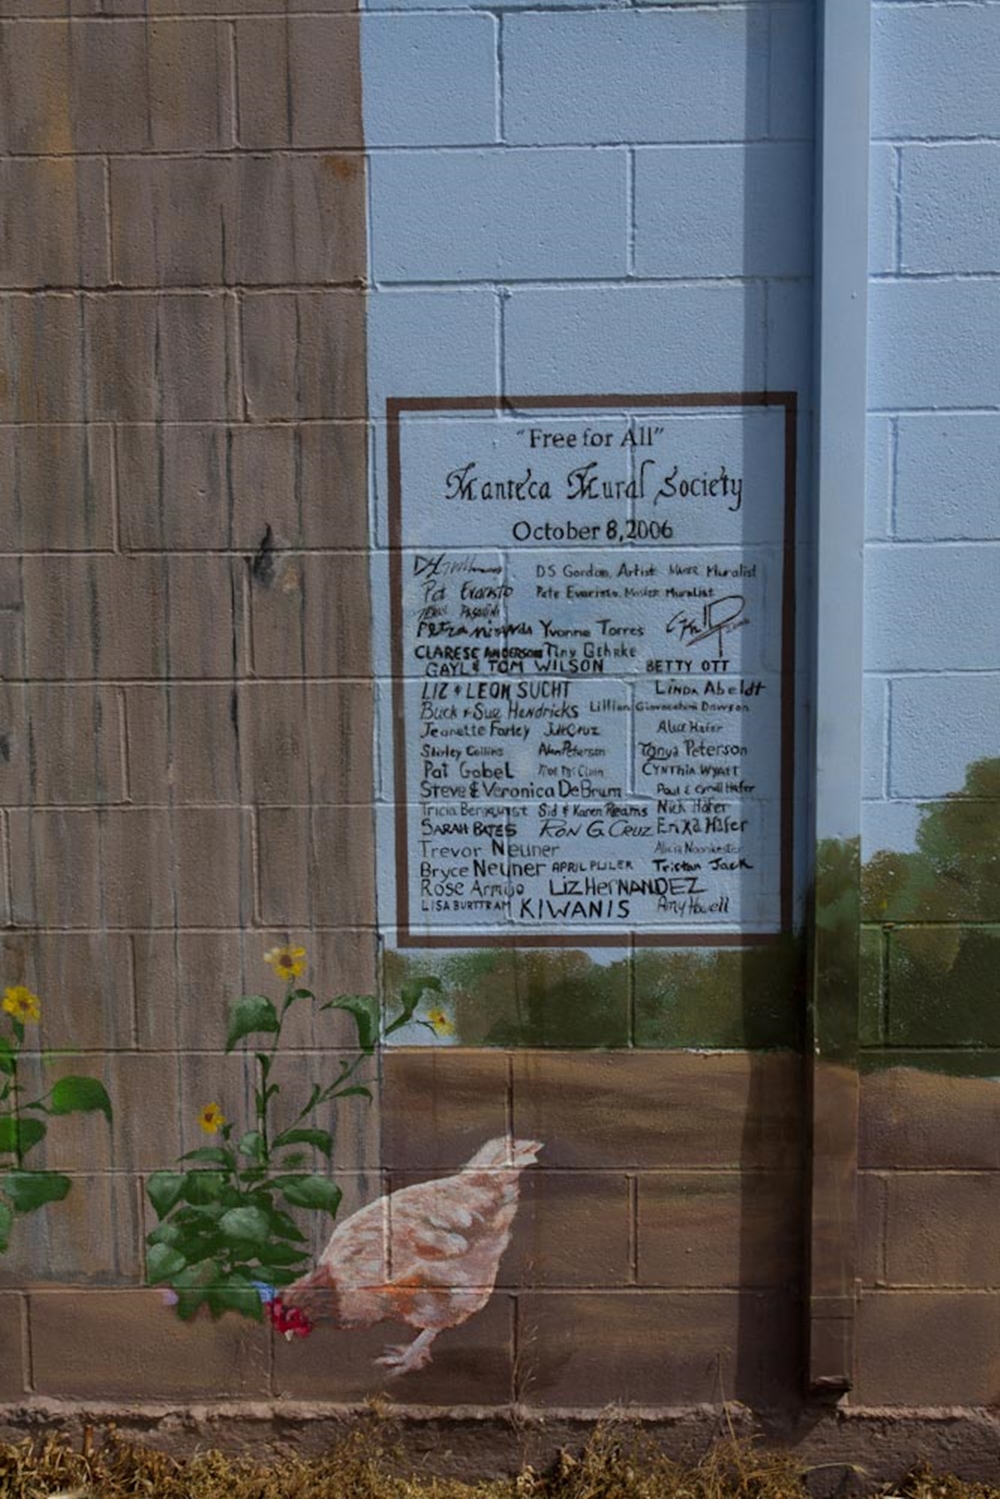 "Free for All"
Manteca Mural Society
October 8, 2006
DS Gordon, Artist Muralist
Pat Evaristo Pete Evaristo, Master Muralist
Petra Miranda Yvonne Torres
CLARESE ANDERSON Tiny Gehrke
GAYL & TOM WILSON BETTY OTT
LIZ & LEON SUCHT Linda Abeldt
Buck & Sue Hendricks Lillian Giovacchini Dawson
Jeanette Farley Juli Cruz Alice Hafer
Shirley Collins Alan Peterson Tonya Peterson
Pat Gobel CYNTHIA WYATT
Steve & Veronica DeBrum Paul & Cyndi Hafer
Tricia Bergquist Sid & Karen Reams Nick Hafer
SARAH BATES RON G. CRUZ Erika Hafer
Trevor Neuner
Bryce Neuner APRIL Tristan Jack
Rose Armijo LIZ HERNANDEZ
LISA BURTTRAM KIWANIS Amy Howell